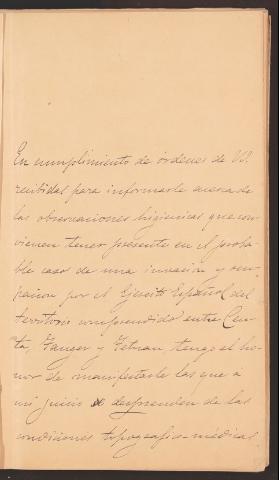 En cumplimiento de órdenes de VS.
recibidas para informarle acerca de
las observaciones higienicas que con-
vienen tener presente en el proba-
ble caso de una invasion y ocu-
pacion por el Ejército Español del
territorio comprendido entre Ceu-
ta, Tanger y Tetuan, tengo el ho-
nor de manifestarle las que á
mi juicio se desprenden de las
condiciones topografico-médicas